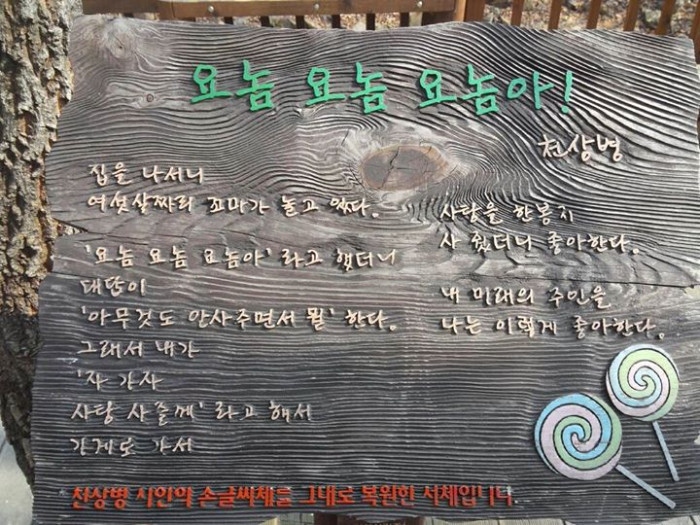 요놈 요놈 요놈아!
천상병
집을 나서니
여섯살짜리 꼬마가 놀고 있다.
'요놈 요놈 요놈아' 라고 했더니
대답이
'아무것도 안사주면서 뭘' 한다.
그래서 내가
'자 가자
사탕 사줄께' 라고 해서
가게로 가서
사탕을 한봉지
사 줬더니 좋아한다.
내 미래의 주인을
나는 이렇게 좋아한다.
천상병 시인의 손글씨체를 그대로 복원한 서체입니다.